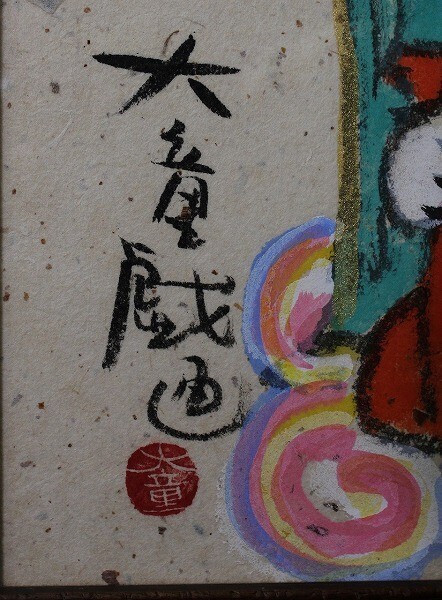 大童戯画
大童